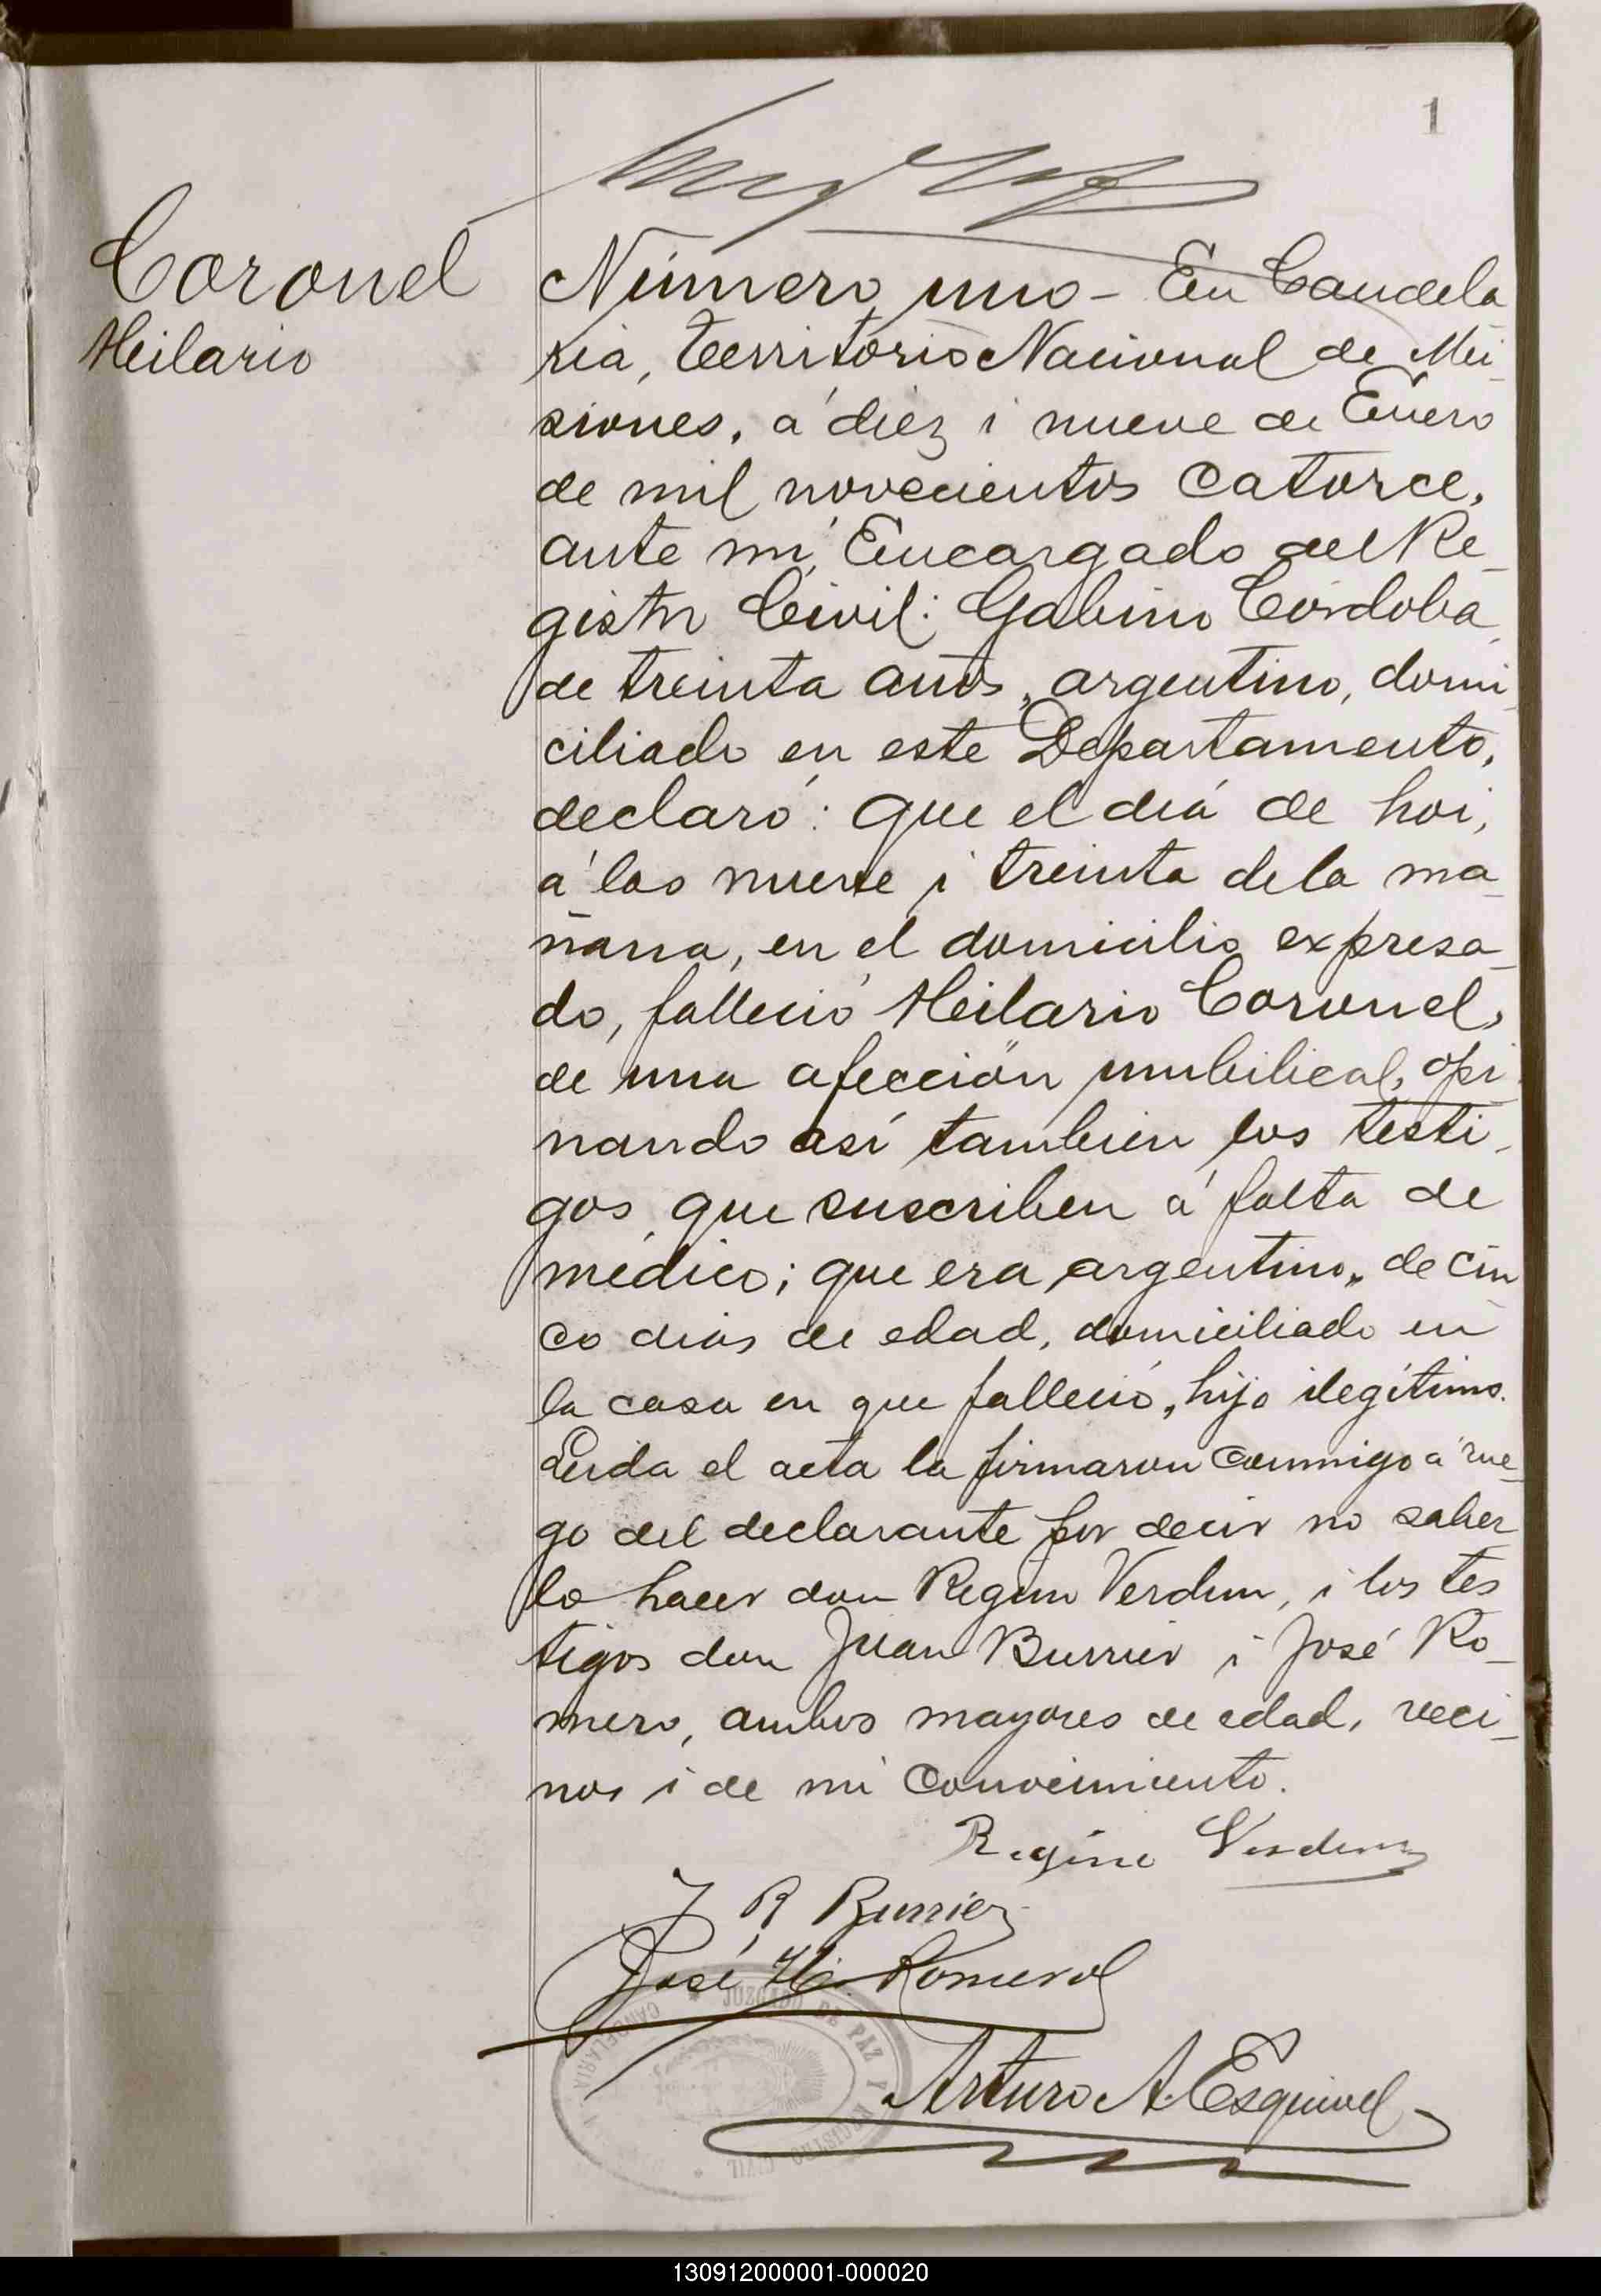 1
Coronel
Hilario
Número uno - En Candela
ria, Territorio Nacional de Mi
siones, á diez i nueve de Enero
de mil novecientos catorce,
ante mí, Encargado del Re_
gistro Civil: Gabino Córdoba,
de treinta años, argentino, domi_
ciliado en este Departamento,
declaró: que el día de hoi,
á las nueve i treinta de la ma_
ñana, en el domicilio expresa_
do, falleció Hilario Coronel,
de una afección umbilical, opi_
nando así tambien los testi_
gos que suscriben á falta de
médico; que era argentino, de cin
co dias de edad, domiciliado en
la casa en que falleció, hijo ilegítimo.
Leida el acta la firmaron conmigo á rue_
go del declarante por decir no saber
lo hacer don Regino Verdun, i los tes
tigos don Juan Burrier i José Ro_
mero, ambos mayores de edad, veci_
nos i de mi conocimiento.
Regino Verdun
J R Burrier
José H. Romero
Arturo A. Esquivel
JUZGADO DE PAZ Y REGISTRO CIVIL
CANDELARIA
130912000001-000020